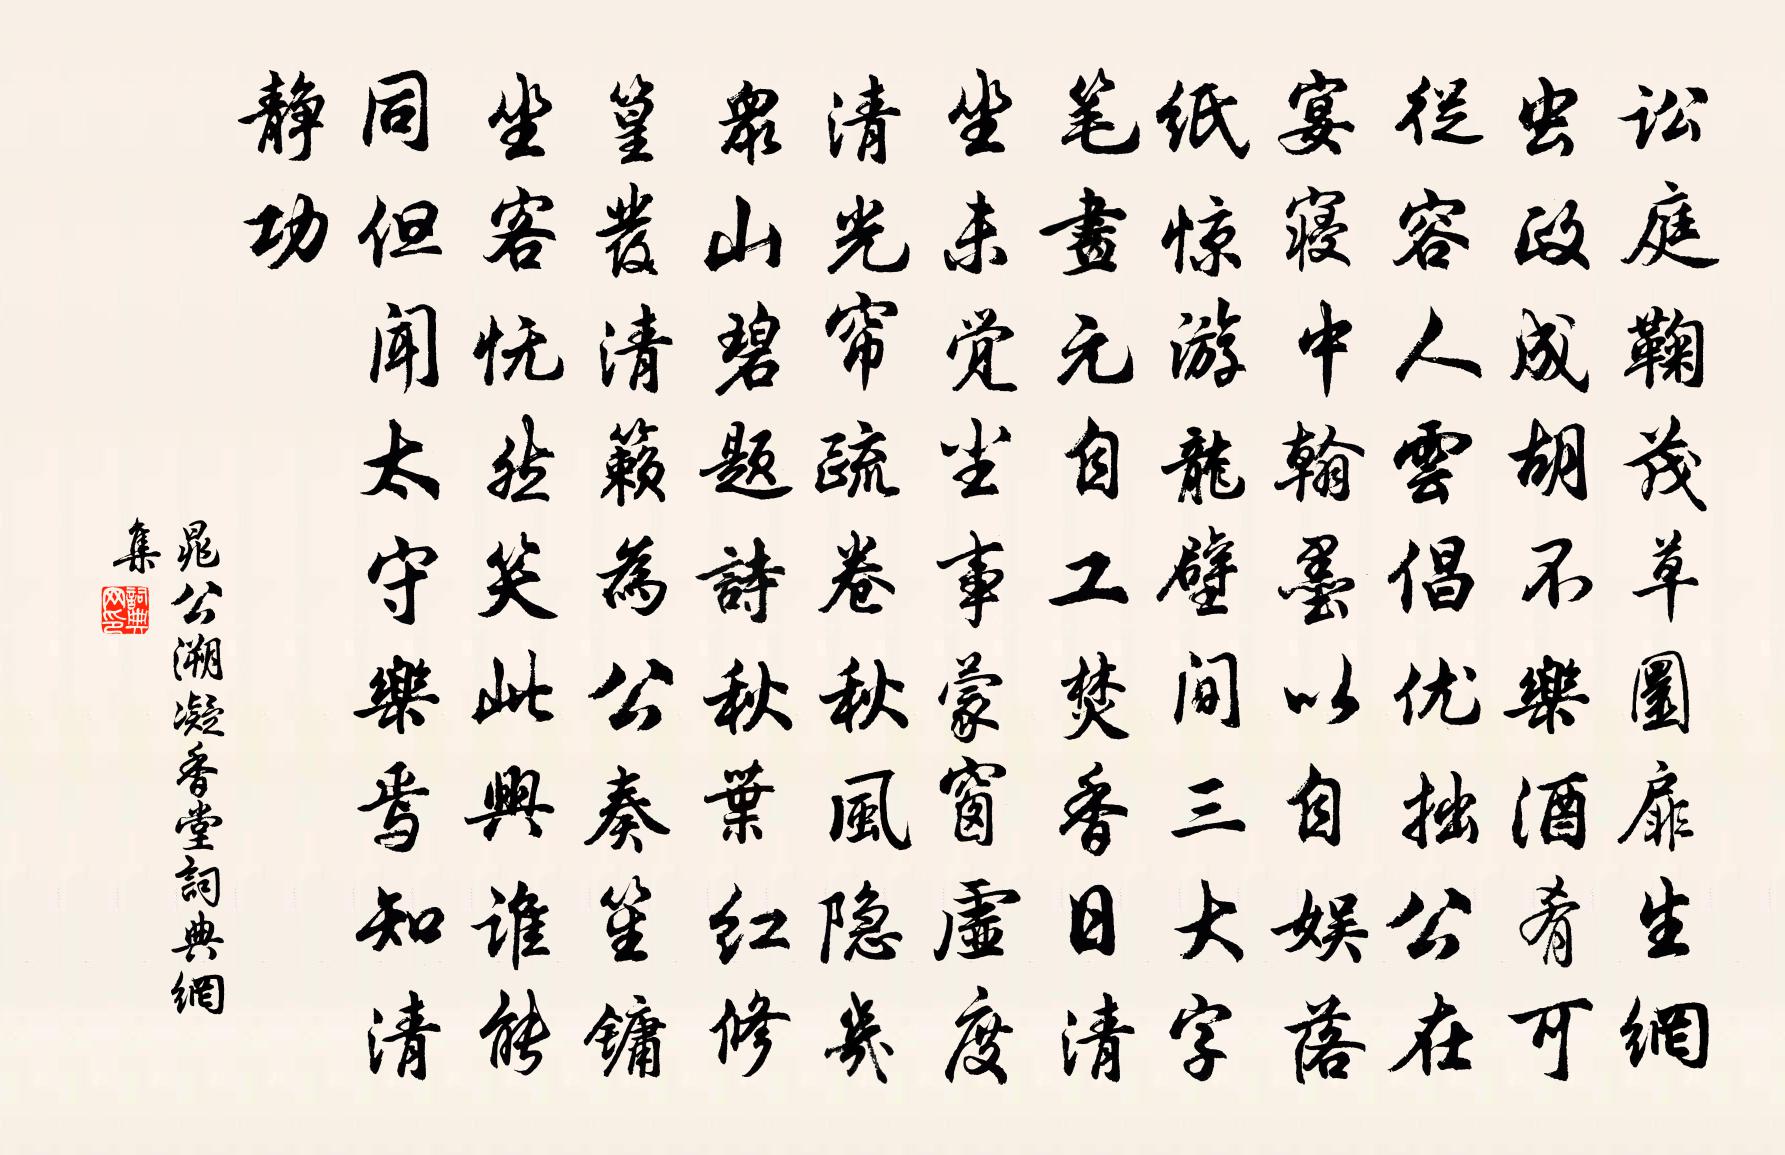 訟庭鞠茂草圄扉生網
虫政成胡不樂酒肴可
從容人雲倡优拙公在
宴寝中翰墨以自娱落
纸惊游龍壁间三大字
笔畫元自工焚香日清
坐未觉尘事蒙窗虚度
清光帘疏卷秋風隐幾
衆山碧题詩秋葉红修
篁發清籁為公奏笙鏞
坐客恍然笑此興谁能
同但闻太守樂焉知清
静功
晁公溯凝香堂詞典網
集
詞典网印